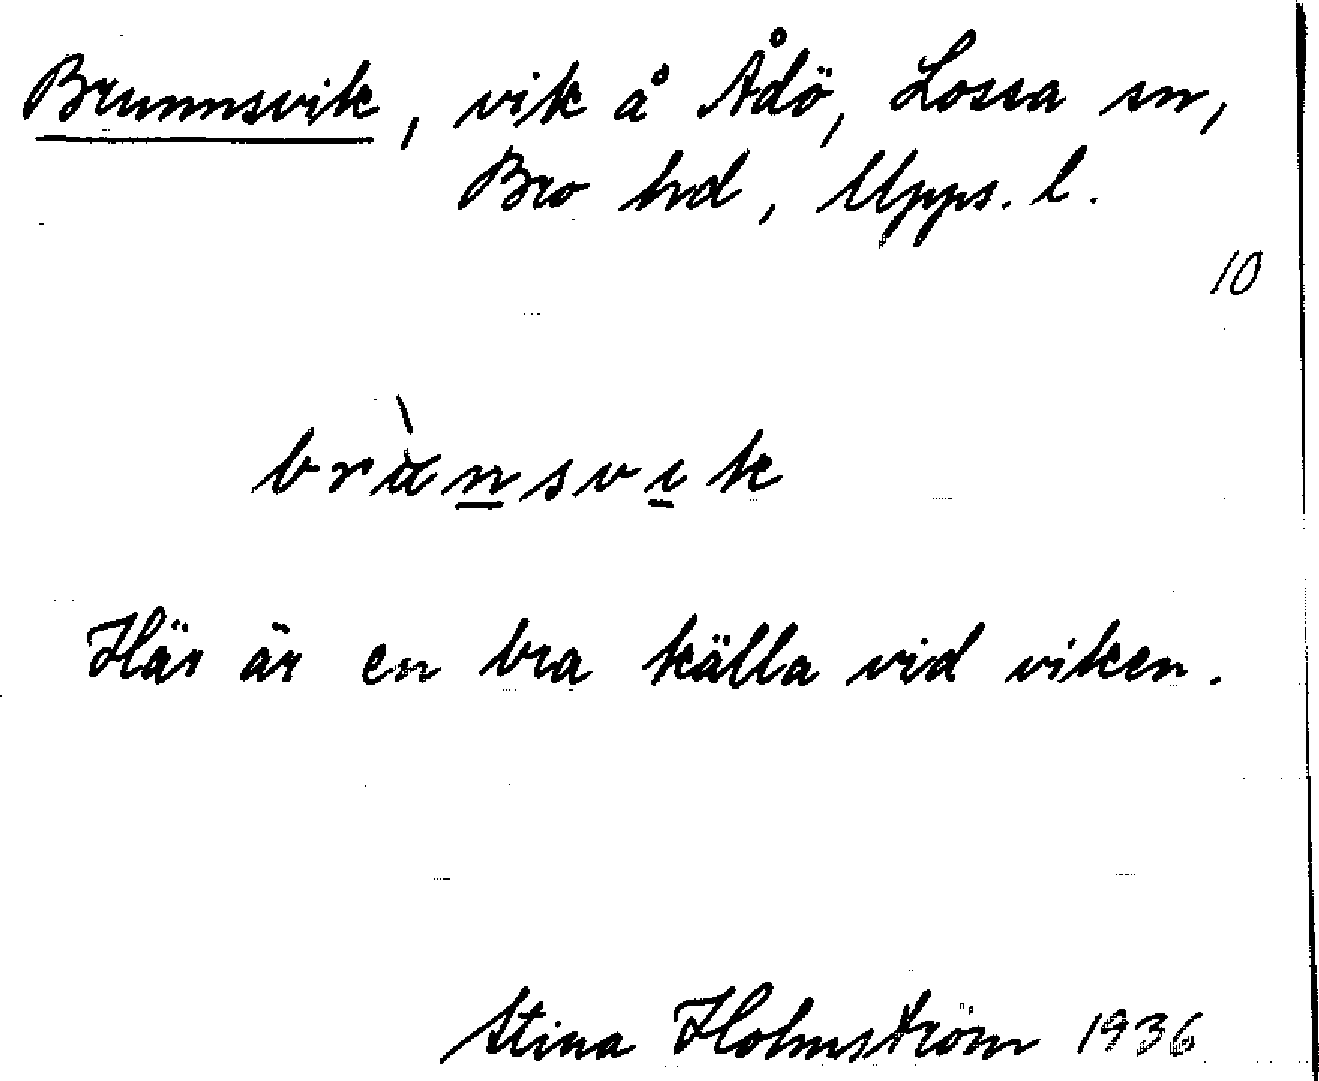 Brunnsvik, vik å Ådö, Lossa sn,
Bro hd, Upps. l.
10
brànsvik
Här är en bra källa vid viken.
Stina Holmström 1936